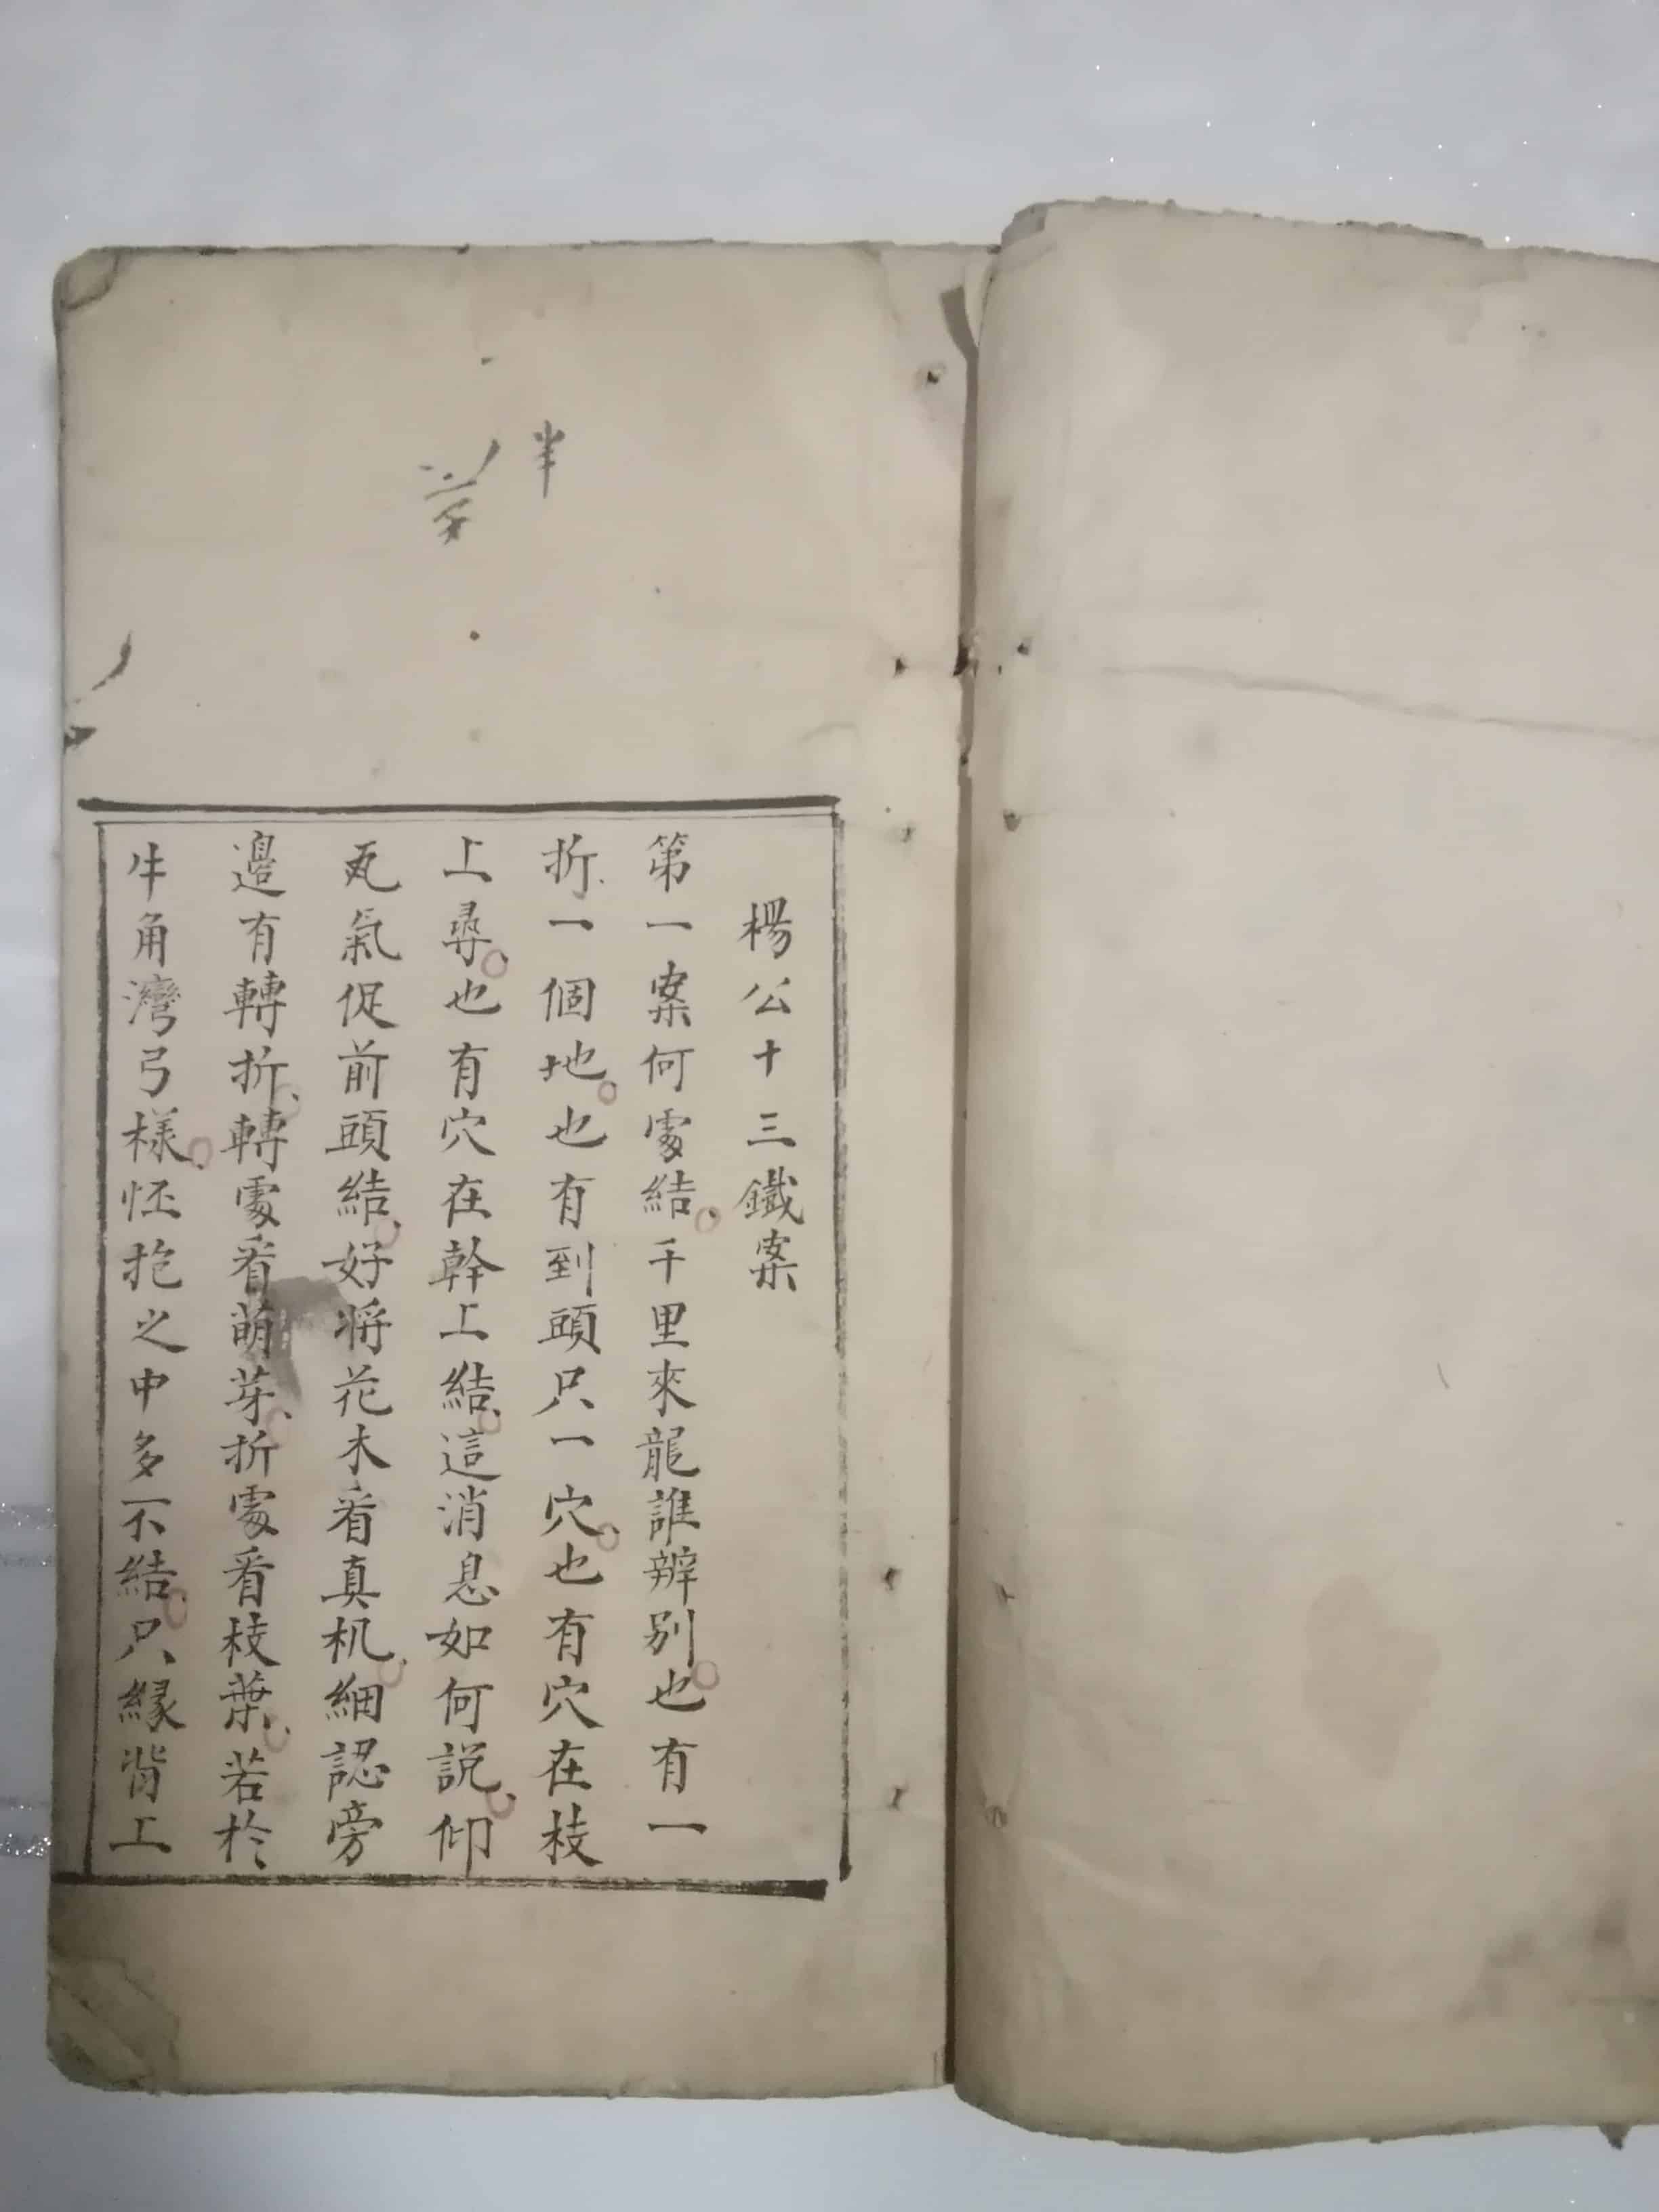 楊公十三鐵案
第一案何處結千里來龍誰辨別也有一
折一個地也有到頭只一穴也有穴在枝
上尋也有穴在幹上結這消息如何説仰
瓦氣促前頭結好将花木看真机細認旁
邉有轉折轉處看萌芽折處看枝葉若於
牛角灣弓樣怌抱之中多不結只縁背工